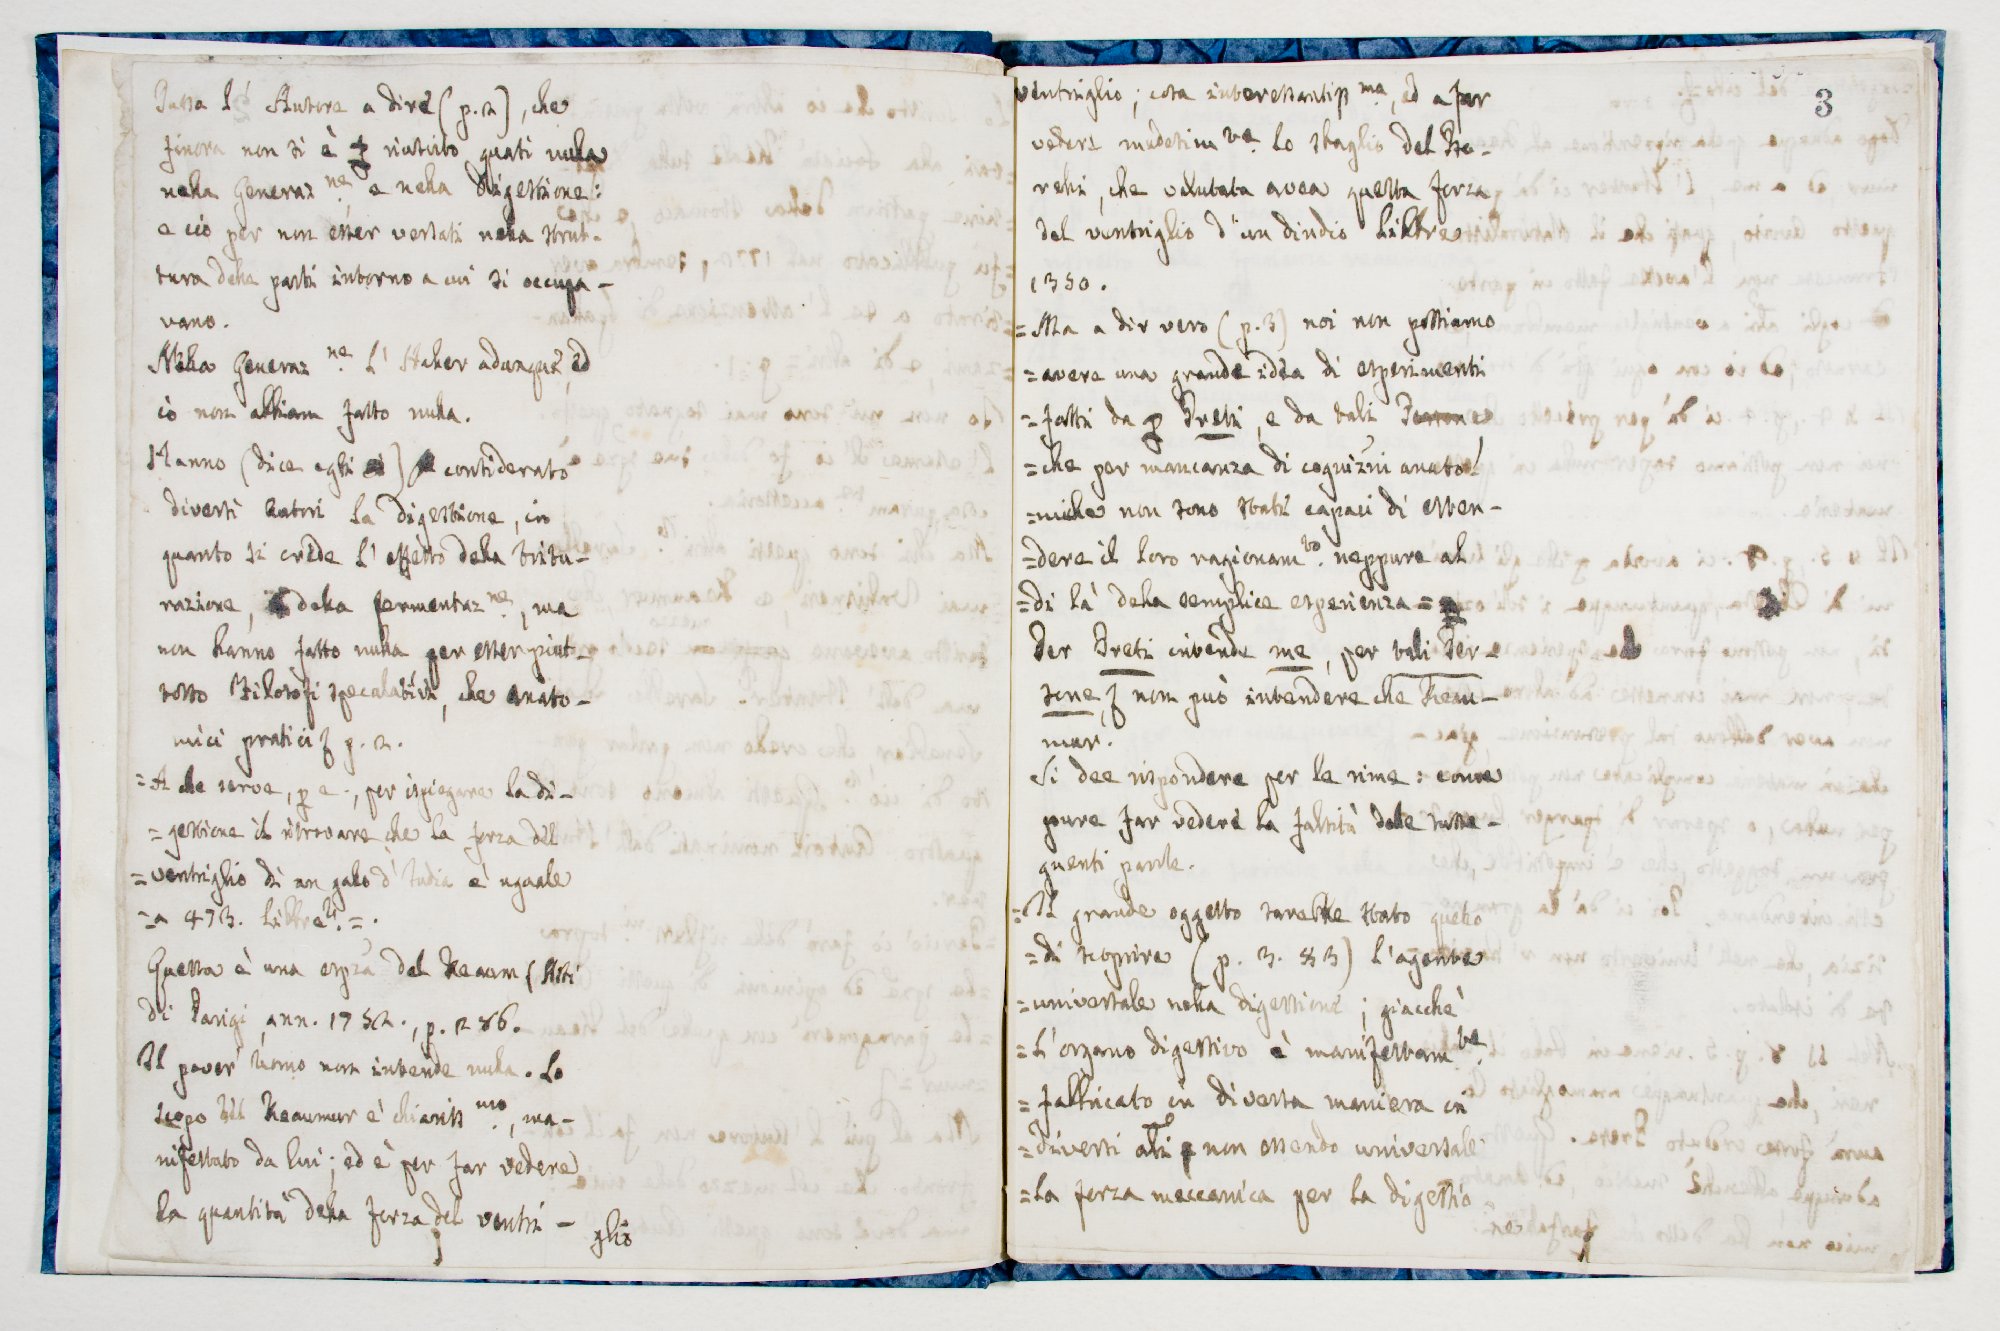 Passa l' Autore a dire (p. 2), che
finora non si è riuscito quasi nulla
nella Generaz.ne, e nella Digestione:
e ciò per non esser versati nella strut-
tura delle parti intorno a cui si occupa-
vano.
Nella Generaz.ne l' Haller adunque, ed
io non abbiam fatto nulla.
Hanno (dice egli) considerato
diversi autori la digestione, in
quanto si crede l' effetto della tritu-
razione, della fermentaz.ne, ma
non hanno fatto nulla per esser piut-
tosto Filosofi specolativi, che anato-
mici pratici p. 2.
= A che serve, p. e., per ispiegare la di-
= gestione il ritrovare che la forza del
= ventriglio di un gallo d' India è uguale
= a 473. Libbre? = .
Questa è una espza del Reaum (Atti
di Parigi ann. 1752., p. 286.
Il pover' uomo non intende nulla. Lo
scopo del Reaumur è chiariss.mo, ma-
nifestato da lui; ed è per far vedere
la quantità della forza del ventri-
glio
3
ventriglio; cosa interessantiss.ma, ed a far
vedere medesimam.te lo sbaglio del Bo-
relli, che valutata avea questa forza
del ventriglio d' un dindio libbre
1350.
= Ma a dir vero (p. 3) noi non possiamo
= avere una grande idea di esperimenti
= fatti da Preti, e da tali Persone
= che per mancanza di cognizni anato-
= miche non sono stati capaci di esten-
= dere il loro ragionam.to neppure al
= di là della semplice esperienza =
Per Preti intende me, per tali Per-
sone non può intendere che Reau-
mur.
Si dee rispondere per le rime: come
pure far vedere la falsità delle susse-
guenti parole.
= Il grande oggetto sarebbe stato quello
= di scoprire (p. 3. 83) l' agente
= universale nella digestione; giacchè
= l' organo digestivo è manifestam.te
= fabbricato in diversa maniera in
= diversi ali non essendo universale
= la forza meccanica per la digestio
ne